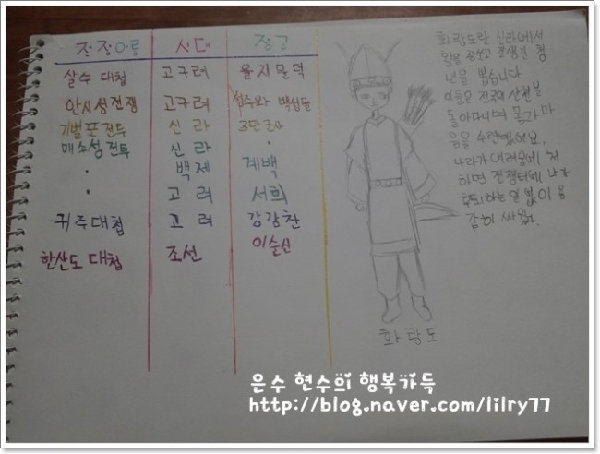 전쟁이름 시대 장군
살수 대첩 고구려 을지문덕
안시성전쟁 고구려 성주와 백성들
기벌포전투 신라
매소성전투 신라
백제 계백
고려 서희
귀주대첩 고려 강감찬
한산도 대첩 조선 이순신
화랑도란 신라에서
잘생긴 청
년을 뽑습니다
이들은 전국의 산천을
돌아다니며 몸과 마
음을 수련했어요.
나라가 어려움에 처
하면 전쟁터에 나가
용
감히 싸웠어.
화랑도
은수 현수의 행복가득
http://blog.naver.com/lilry77